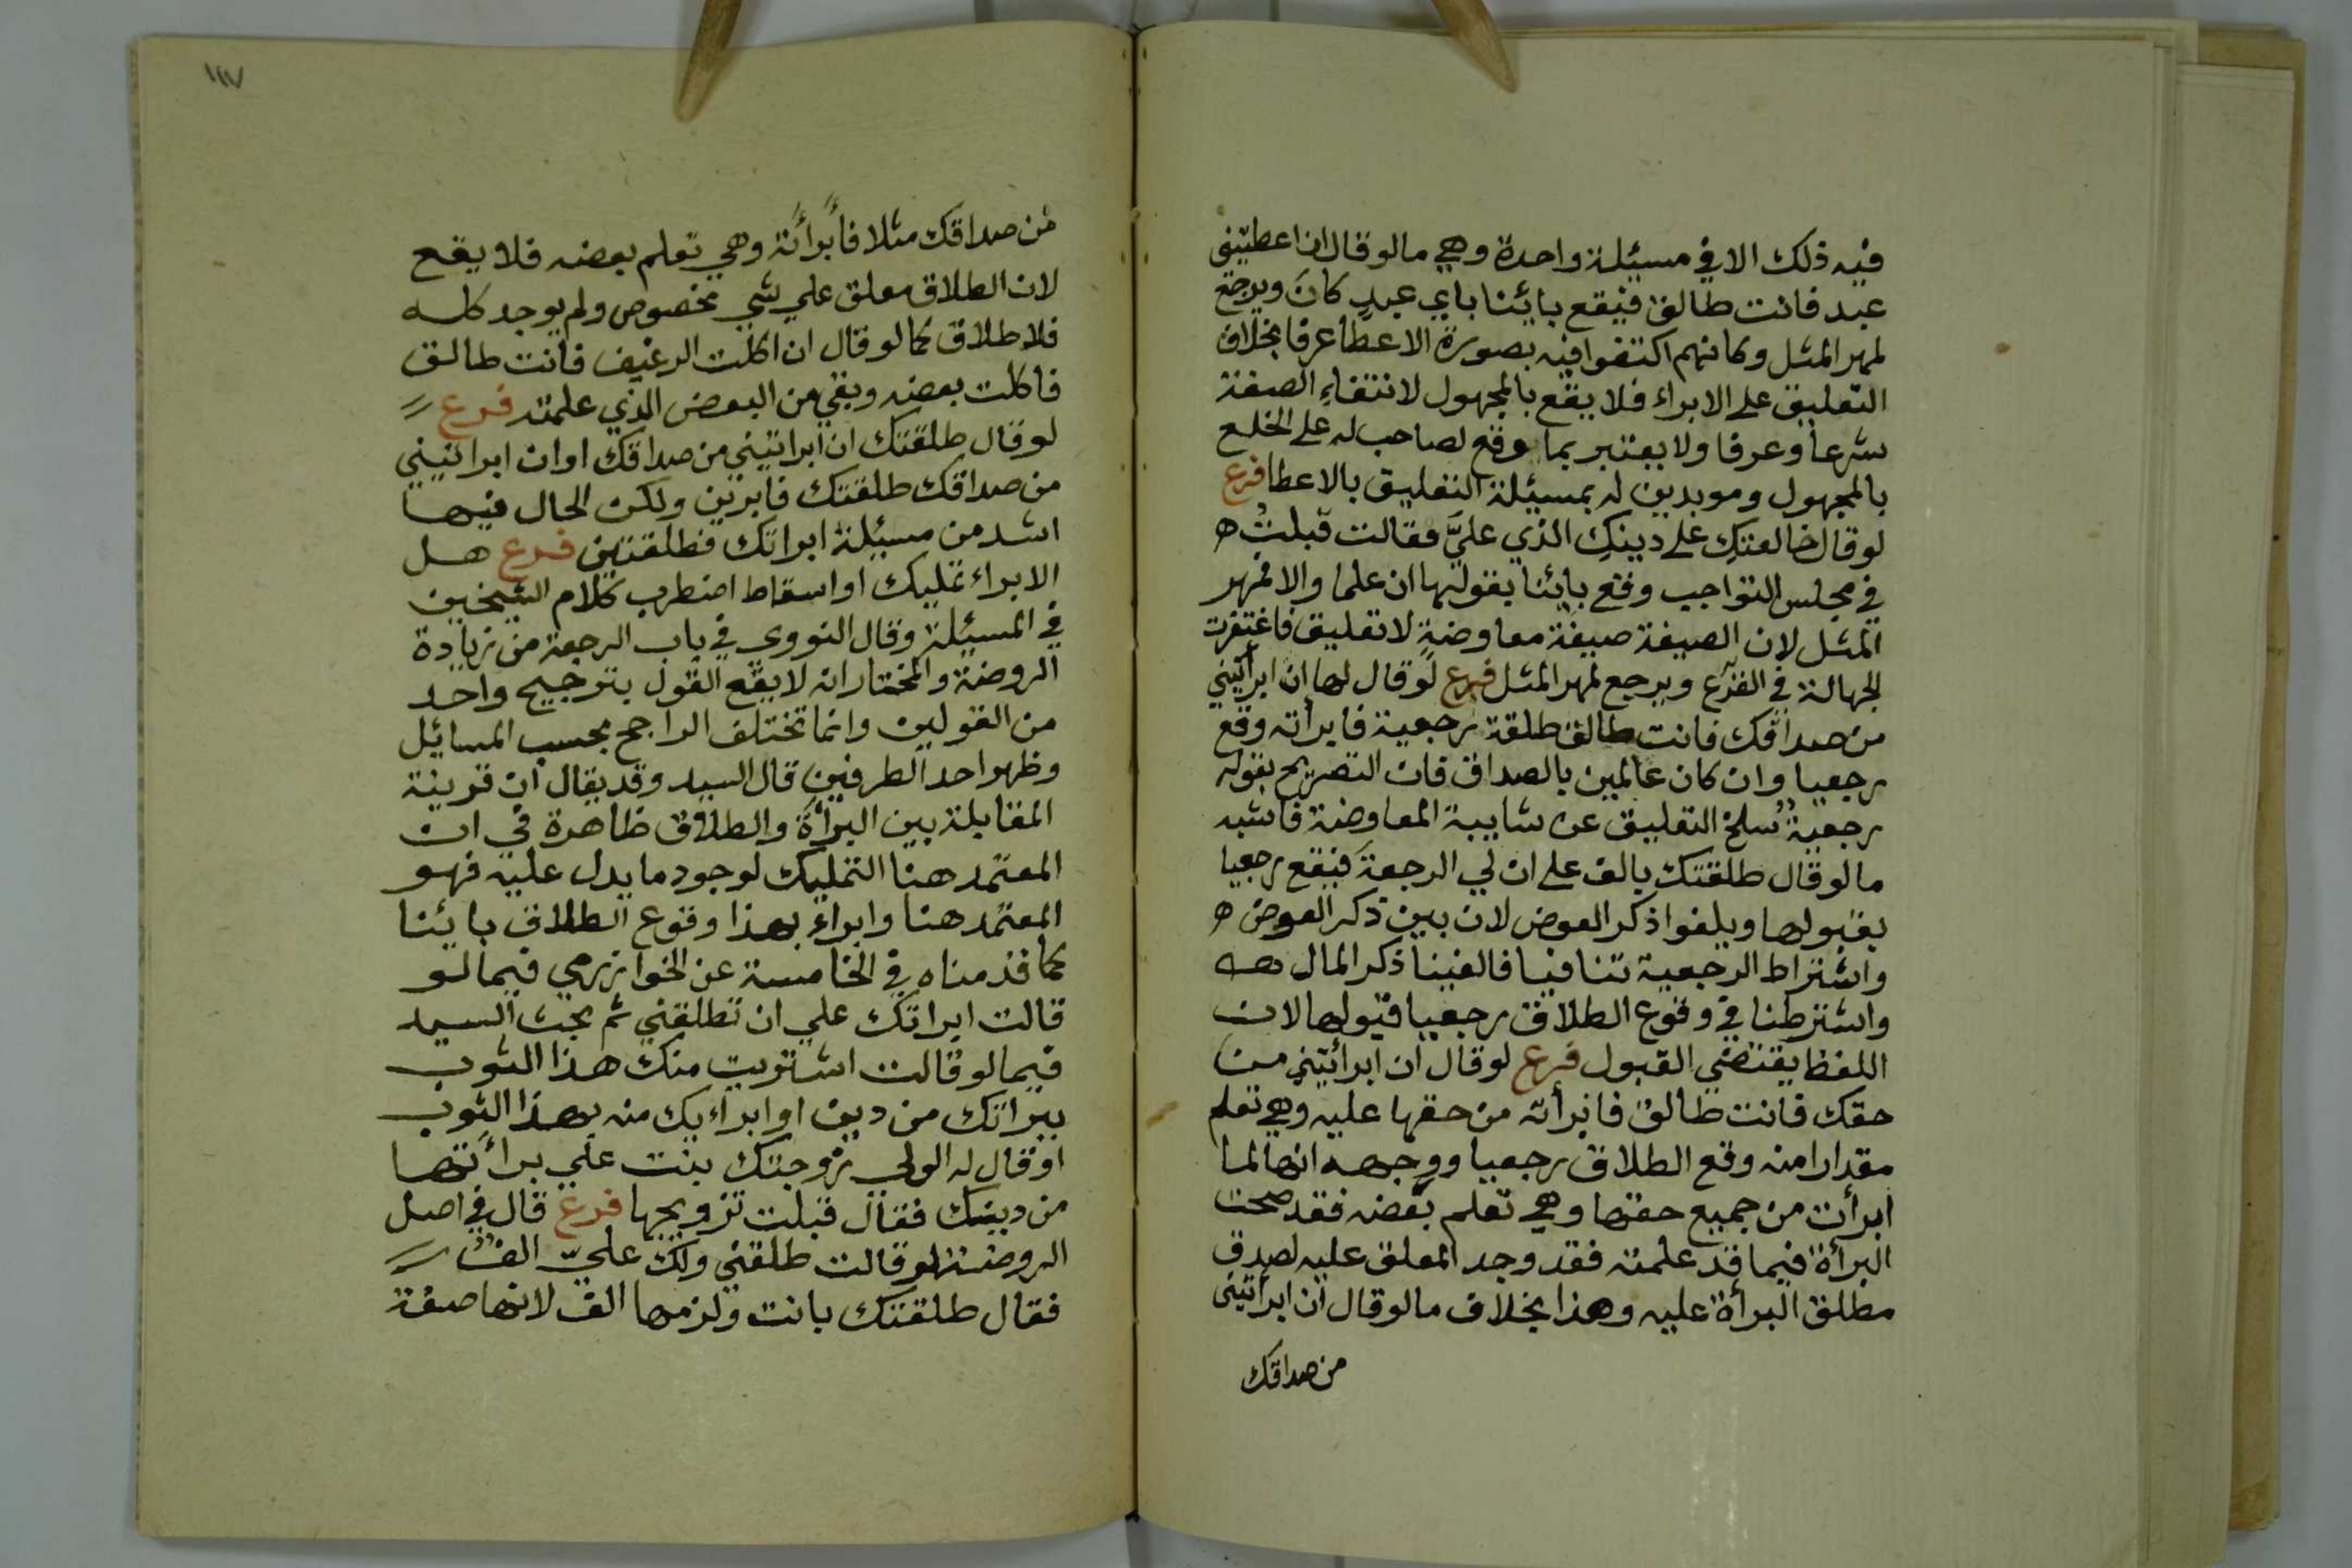 فيه ذلك الا في مسيئلة واحدة وهي مالو قال ان اعطيتني
عبد فانت طالق فيقع بايئنا باي عبدٍ كانَ ويرجع
لمهر المثل وكانهم اكتفوا فيه بصورة الاعطا عرفا بخلاف
التعليق على الابراء فلا يقع بالمجهول لانتفاءِ الصفة
شرعا وعرفا ولا يعتبر بما وقع لصاحب له على الخلع
بالمجهول ومويدين له بمسيئلة التعليق بالاعطا فرع
لو قال خالعتكِ على دينكِ الذي عليَّ فقالت قبلتُ ه
في مجلس التواجب وقع بايئنا بقولها ان علما والا فمهر
المثل لان الصيغة صيغة معاوضةٍ لا تعليق فاغتفرت
الجهالة في الفرع ويرجع لمهر المثل فرع لو قال لها ان ابرأتيني
من صداقك فانت طالق طلقة رجعية فابرأته وقع
رجعيا وان كان عالمين بالصداق فان التصريح بقوله
رجعية سلخ التعليق عن شايبة المعاوضة فاشبه
مالو قال طلقتك بالف على ان لي الرجعة فيقع رجعيا
بقبولها ويلغوا ذكر العوض لان بين ذكر العوض ه
واشتراط الرجعية تنافيا فالغينا ذكر المال
واشترطنا في وقوع الطلاق رجعيا قبولها لان
اللفظ يقتضي القبول فرع لو قال ان ابرأتيني من
حقك فانت طالق فابرأته من حقها عليه وهي تعلم
مقدارا منه وقع الطلاق رجعيا ووجهه انها لما
ابرأت من جميع حقها وهي تعلم بعضه فقد صحت
البرأة فيما قد علمته فقد وجد المعلق عليه لصدق
مطلق البرأة عليه وهذا بخلاف مالو قال ان ابرأتيني
من صداقك
١١٧
من صداقك مثلا فأبرأته وهي تعلم بعضه فلا يقع
لان الطلاق معلق علي شي مخصوص ولم يوجد كله
فلا طلاق كما لو قال ان اكلت الرغيف فانت طالق
فاكلت بعضه وبقي من البعض الذي علمته فرع
لو قال طلقتك ان ابراتيني من صداقك او ان ابراتيني
من صداقك طلقتك فابرين ولكن الحال فيها
اشد من مسيئلة ابراتك فطلقتين فرع هل
الابراء تمليك او اسقاط اضطرب كلام الشيخين
في المسيئلة وقال النووي في باب الرجعة من زيادة
الروضة والمختار انه لا يقع القول بترجيح واحد
من القولين وانما تختلف الراجح بحسب المسايئل
وظهوا حد الطرفين قال السيد وقد يقال ان قرينة
المقابلة بين البرأة والطلاق ظاهرة في ان
المعتمد هنا التمليك لوجود ما يدل عليه فهو
المعتمد هنا وابراء بهذا وقوع الطلاق بايئنا
كما قدمناه في الخامسة عن الخوارزمي فيما لو
قالت ابراتك علي ان تطلقني ثم بحث السيد
فيما لو قالت اشتريت منك هذا الثوب
ببراتك من دين او ابراءيك منه بهذا الثوب
او قال له الولي زوجتك بنت علي برأتها
من دينك فقال قبلت تزويجها فرع قال في اصل
الروضة لو قالت طلقني ولك عليّ الف
فقال طلقتك بانت ولزمها الف لانها صيغة